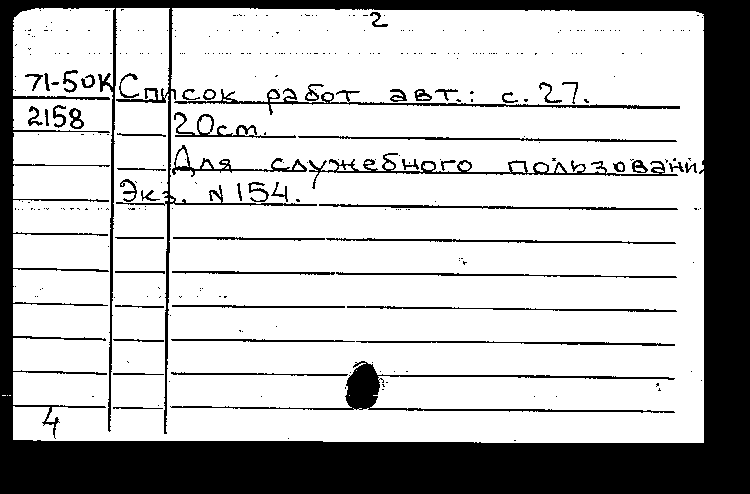 2
71-50К Список работ авт.: с. 27.
2158 20cm.
Для служебного пользования
Экз. N 154.
4